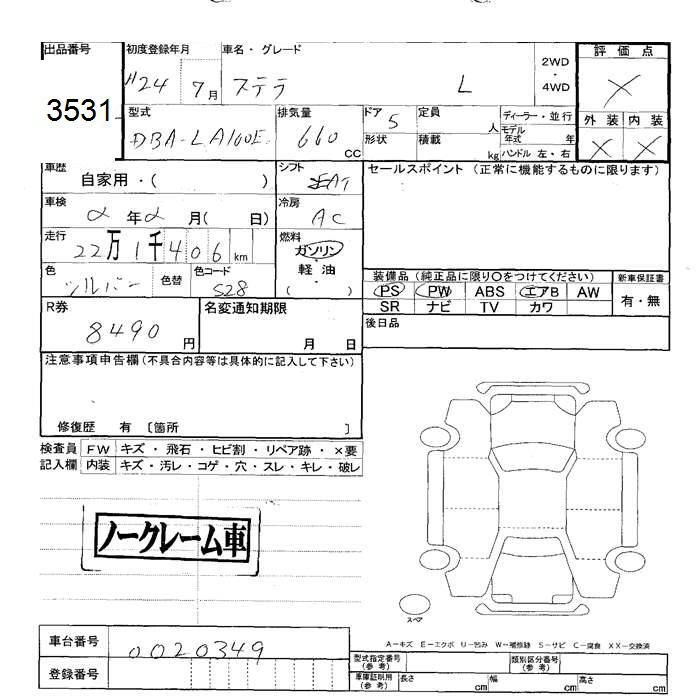 出品番号 初度登録年月 車名・グレード 2WD・4WD 評価点
3531 H24 7月 ステラ L ×
型式 排気量 ドア 定員 ディーラー・並行 外装 内装
DBA-LA100E 660cc 5 人 モデル年式 年 × ×
形状 積載 kg ハンドル 左・右
車歴 シフト セールスポイント (正常に機能するものに限ります)
自家用・( ) AT
車検 冷房
年 月( 日) AC
走行 燃料
22万1千406km ガソリン・軽油・( )
色 色替 色コード
シルバー S28
装備品 (純正品に限り○をつけてください) 新車保証書
PS PW ABS エアB AW 有・無
SR ナビ TV カワ
R券 名変通知期限 後日品
8490円 月 日
注意事項申告欄(不具合内容等は具体的に記入して下さい)
修復歴 有 〔箇所 〕
検査員 FW キズ・飛石・ヒビ割・リペア跡・×要
記入欄 内装 キズ・汚レ・コゲ・穴・スレ・キレ・破レ
ノークレーム車
スペア
車台番号 0020349
A-キズ E-エクボ U-凹み W-補修跡 S-サビ C-腐食 XX-交換済
登録番号
型式指定番号(参考) 類別区分番号(参考)
車庫証明用(参考) 長さ cm 幅 cm 高さ cm